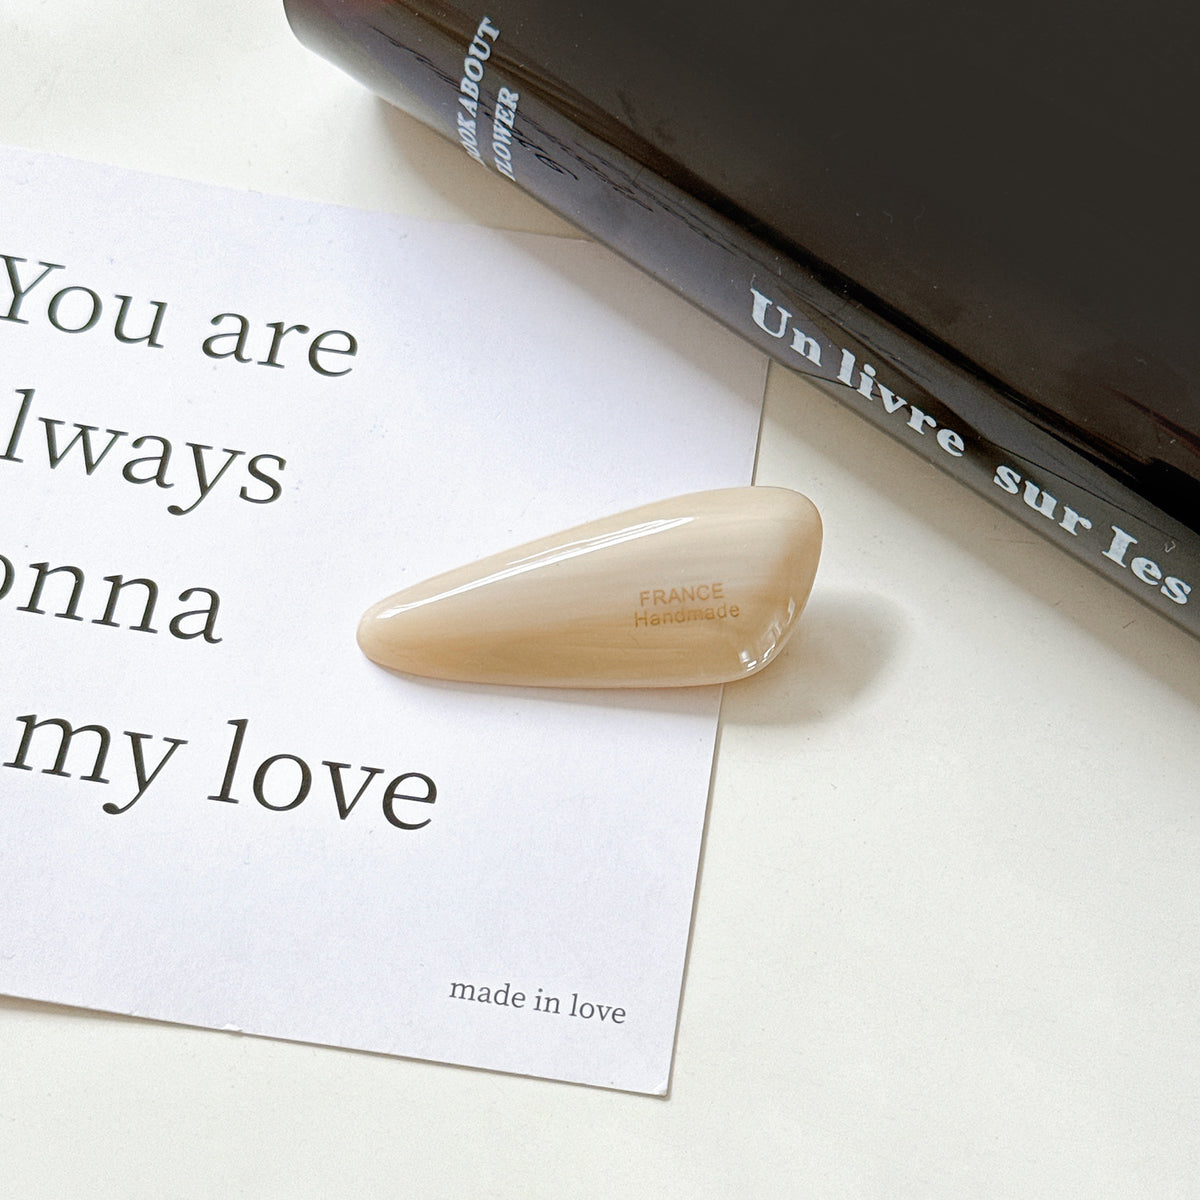 You are
lways
onna
my love
made in love
FRANCE
Handmade
OOK ABOUT
FLOWER
Un livre sur Ies